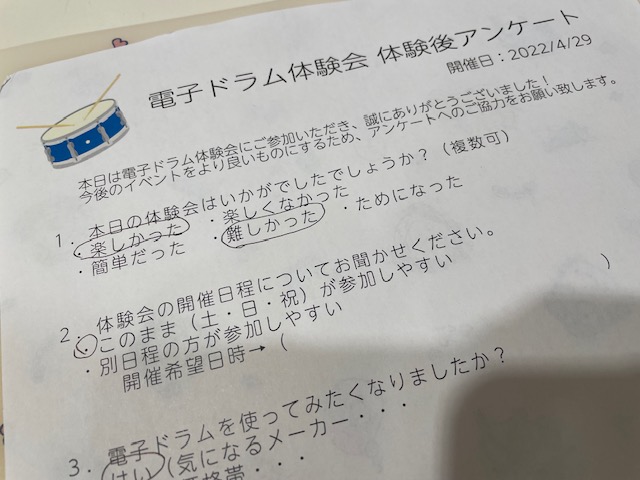 電子ドラム体験会 体験後アンケート
開催日：2022/4/29
本日は電子ドラム体験会にご参加いただき、誠にありがとうございました！
今後のイベントをより良いものにするため、アンケートへのご協力をお願い致します。
1. 本日の体験会はいかがでしたでしょうか？（複数可）
・楽しかった ・楽しくなかった
・簡単だった ・難しかった ・ためになった
2. 体験会の開催日程についてお聞かせください。
・このまま（土・日・祝）が参加しやすい
・別日程の方が参加しやすい
開催希望日時→（ ）
3. 電子ドラムを使ってみたくなりましたか？
はい（気になるメーカー・・・
価格帯・・・